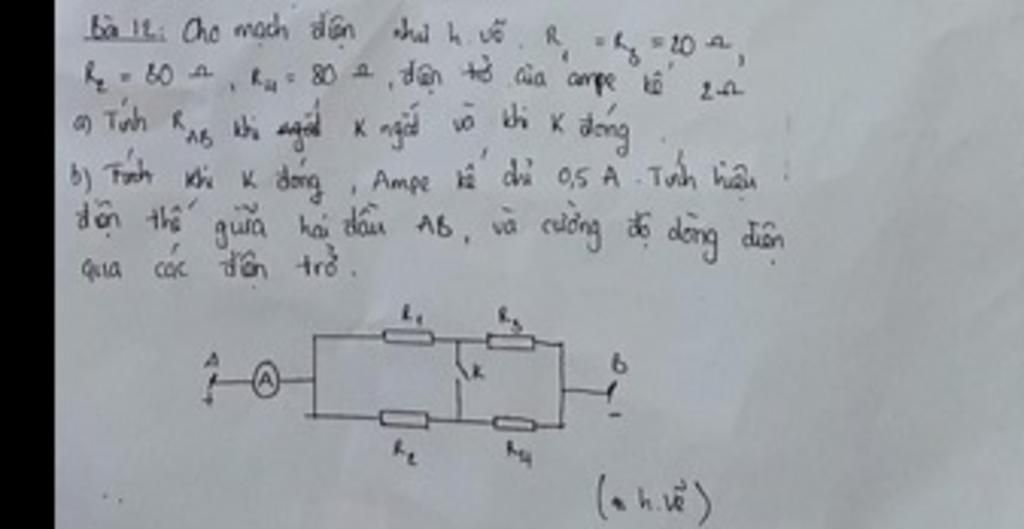 Bài 12: Cho mạch điện như h.vẽ. R₁ = R₃ = 20 Ω,
R₂ = 80 Ω, R₄ = 80 Ω, điện trở của ampe kế 2Ω
a) Tính R_AB khi K ngắt và khi K đóng
b) Tính khi K đóng, Ampe kế chỉ 0,5 A. Tính hiệu
điện thế giữa hai đầu AB, và cường độ dòng điện
qua các điện trở.
R₁ R₃
A A K B
+ -
R₂ R₄
(h.vẽ)